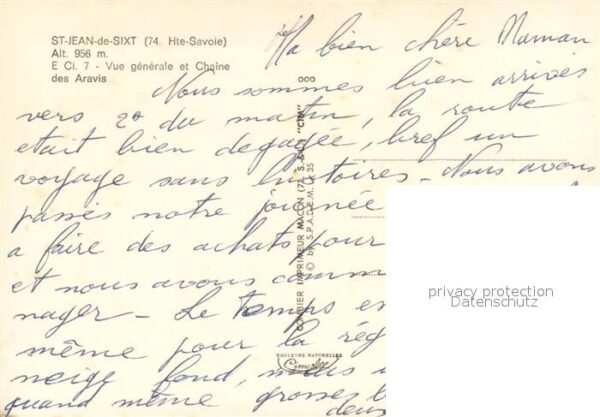 ST-JEAN-de-SIXT (74. Hte-Savoie)
Alt. 956 m.
E Ci. 7 - Vue générale et Chaîne
des Aravis
Ma bien chère Maman
Nous sommes bien arrivés
vers 2h du matin, la route
etait bien degagée, bref un
voyage sans histoires - Nous avons
passés notre journée
a faire des achats pour
et nous avons comm
nager - Le temps es
même pour la rég
neige fond, mais
quand même grosses
deux
COMBIER IMPRIMEUR MACON (71, S.&L.) "CIM"
© by S.P.A.D.E.M. 35
COULEURS NATURELLES
Cimcolor
privacy protection
Datenschutz